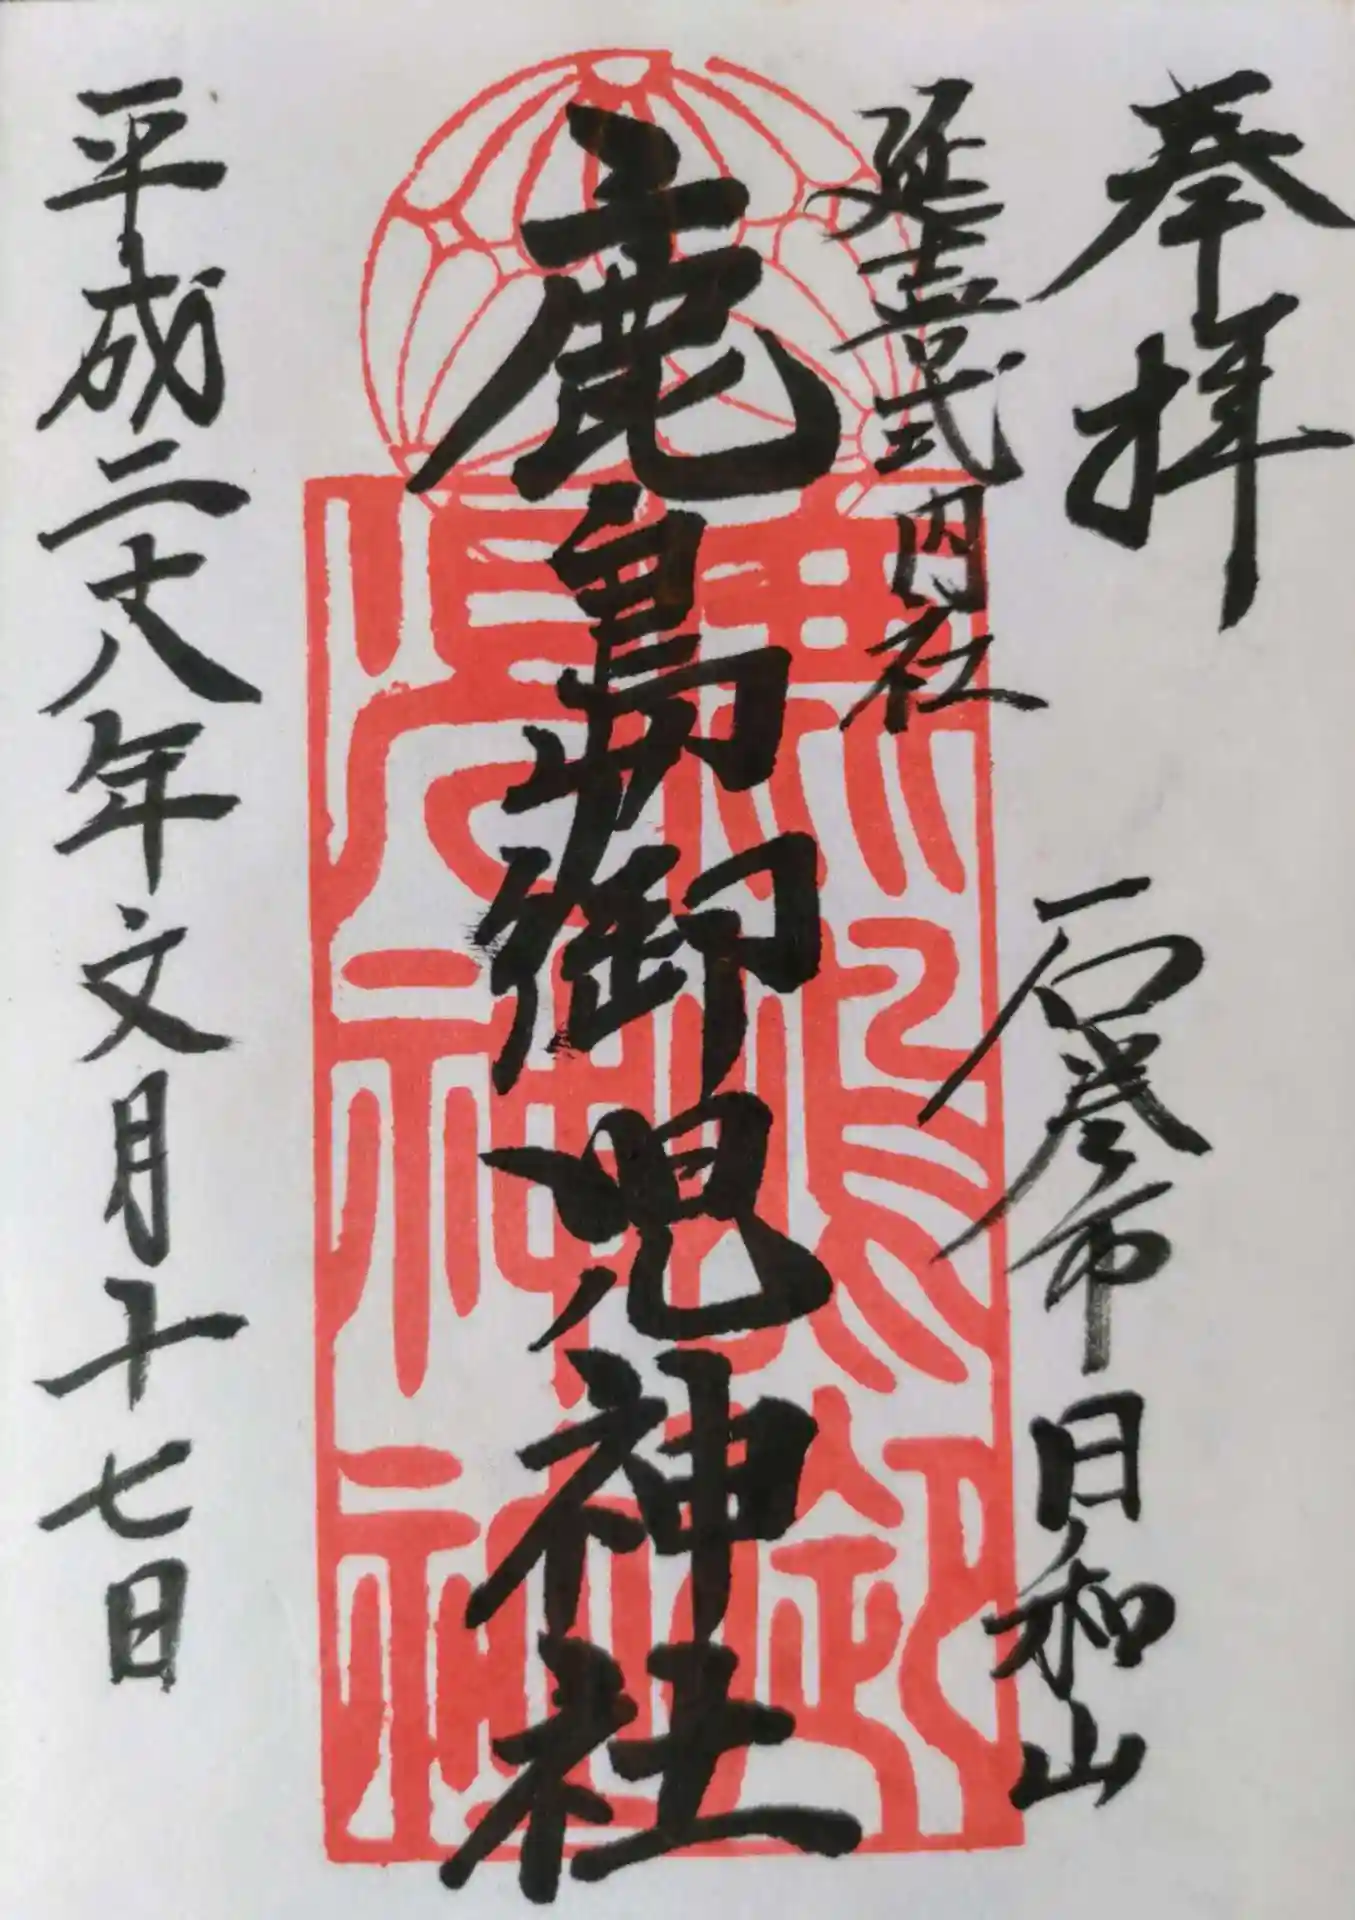 奉拝
石巻市日和山
延喜式内社
鹿島御児神社
平成二十八年文月十七日